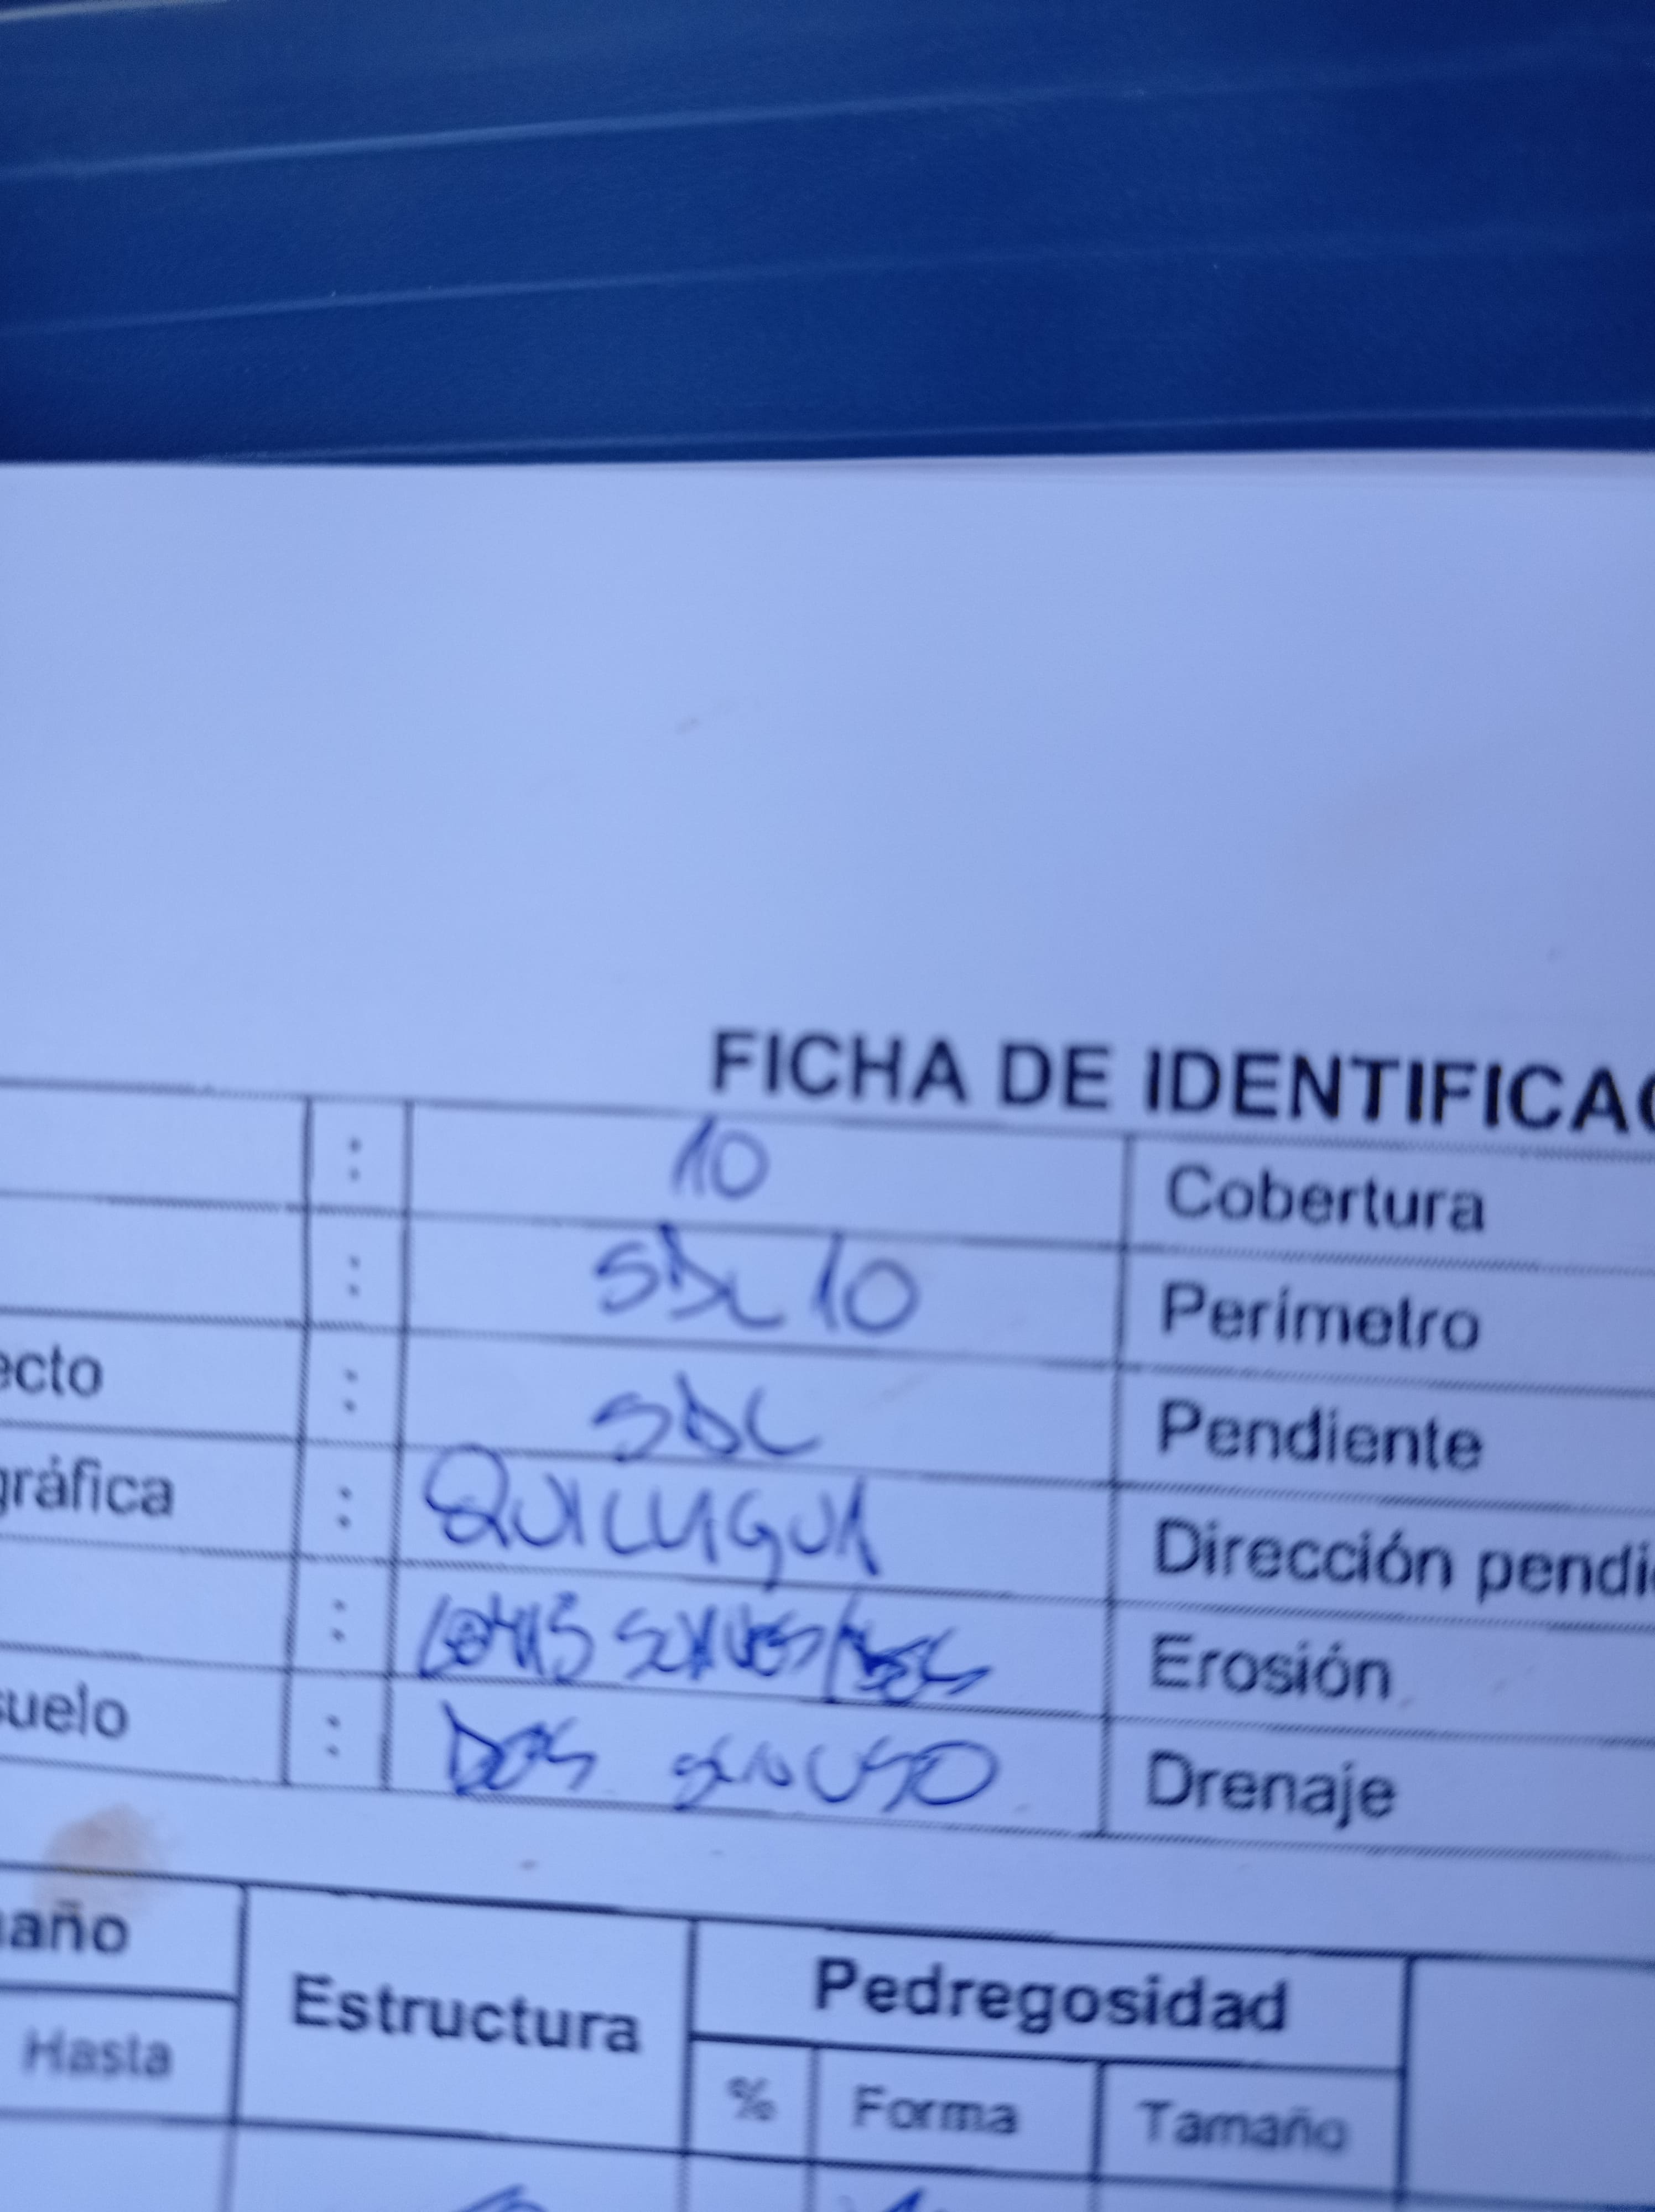 FICHA DE IDENTIFICAC
: 10 Cobertura
: SDL 10 Perímetro
ecto : SDL Pendiente
gráfica : QUILLAGUA Dirección pendi
: Erosión
suelo : USO Drenaje
maño Estructura Pedregosidad
Hasta % Forma Tamaño